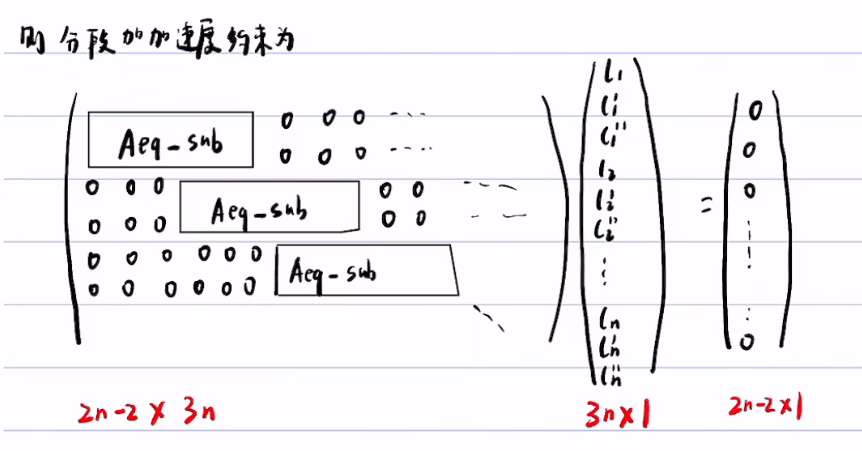 则分段加加速度约束为
Aeq-sub 0 0 0 ----
0 0 0 ----
0 0 0 Aeq-sub 0 0 ----
0 0 0 0 0 ----
0 0 0 0 0 0 Aeq-sub
0 0 0 0 0 0
l₁
l₁'
l₁''
l₂
l₂'
l₂''
⋮
lₙ
lₙ'
lₙ''
=
0
0
0
⋮
0
2n-2 × 3n
3n×1
2n-2×1